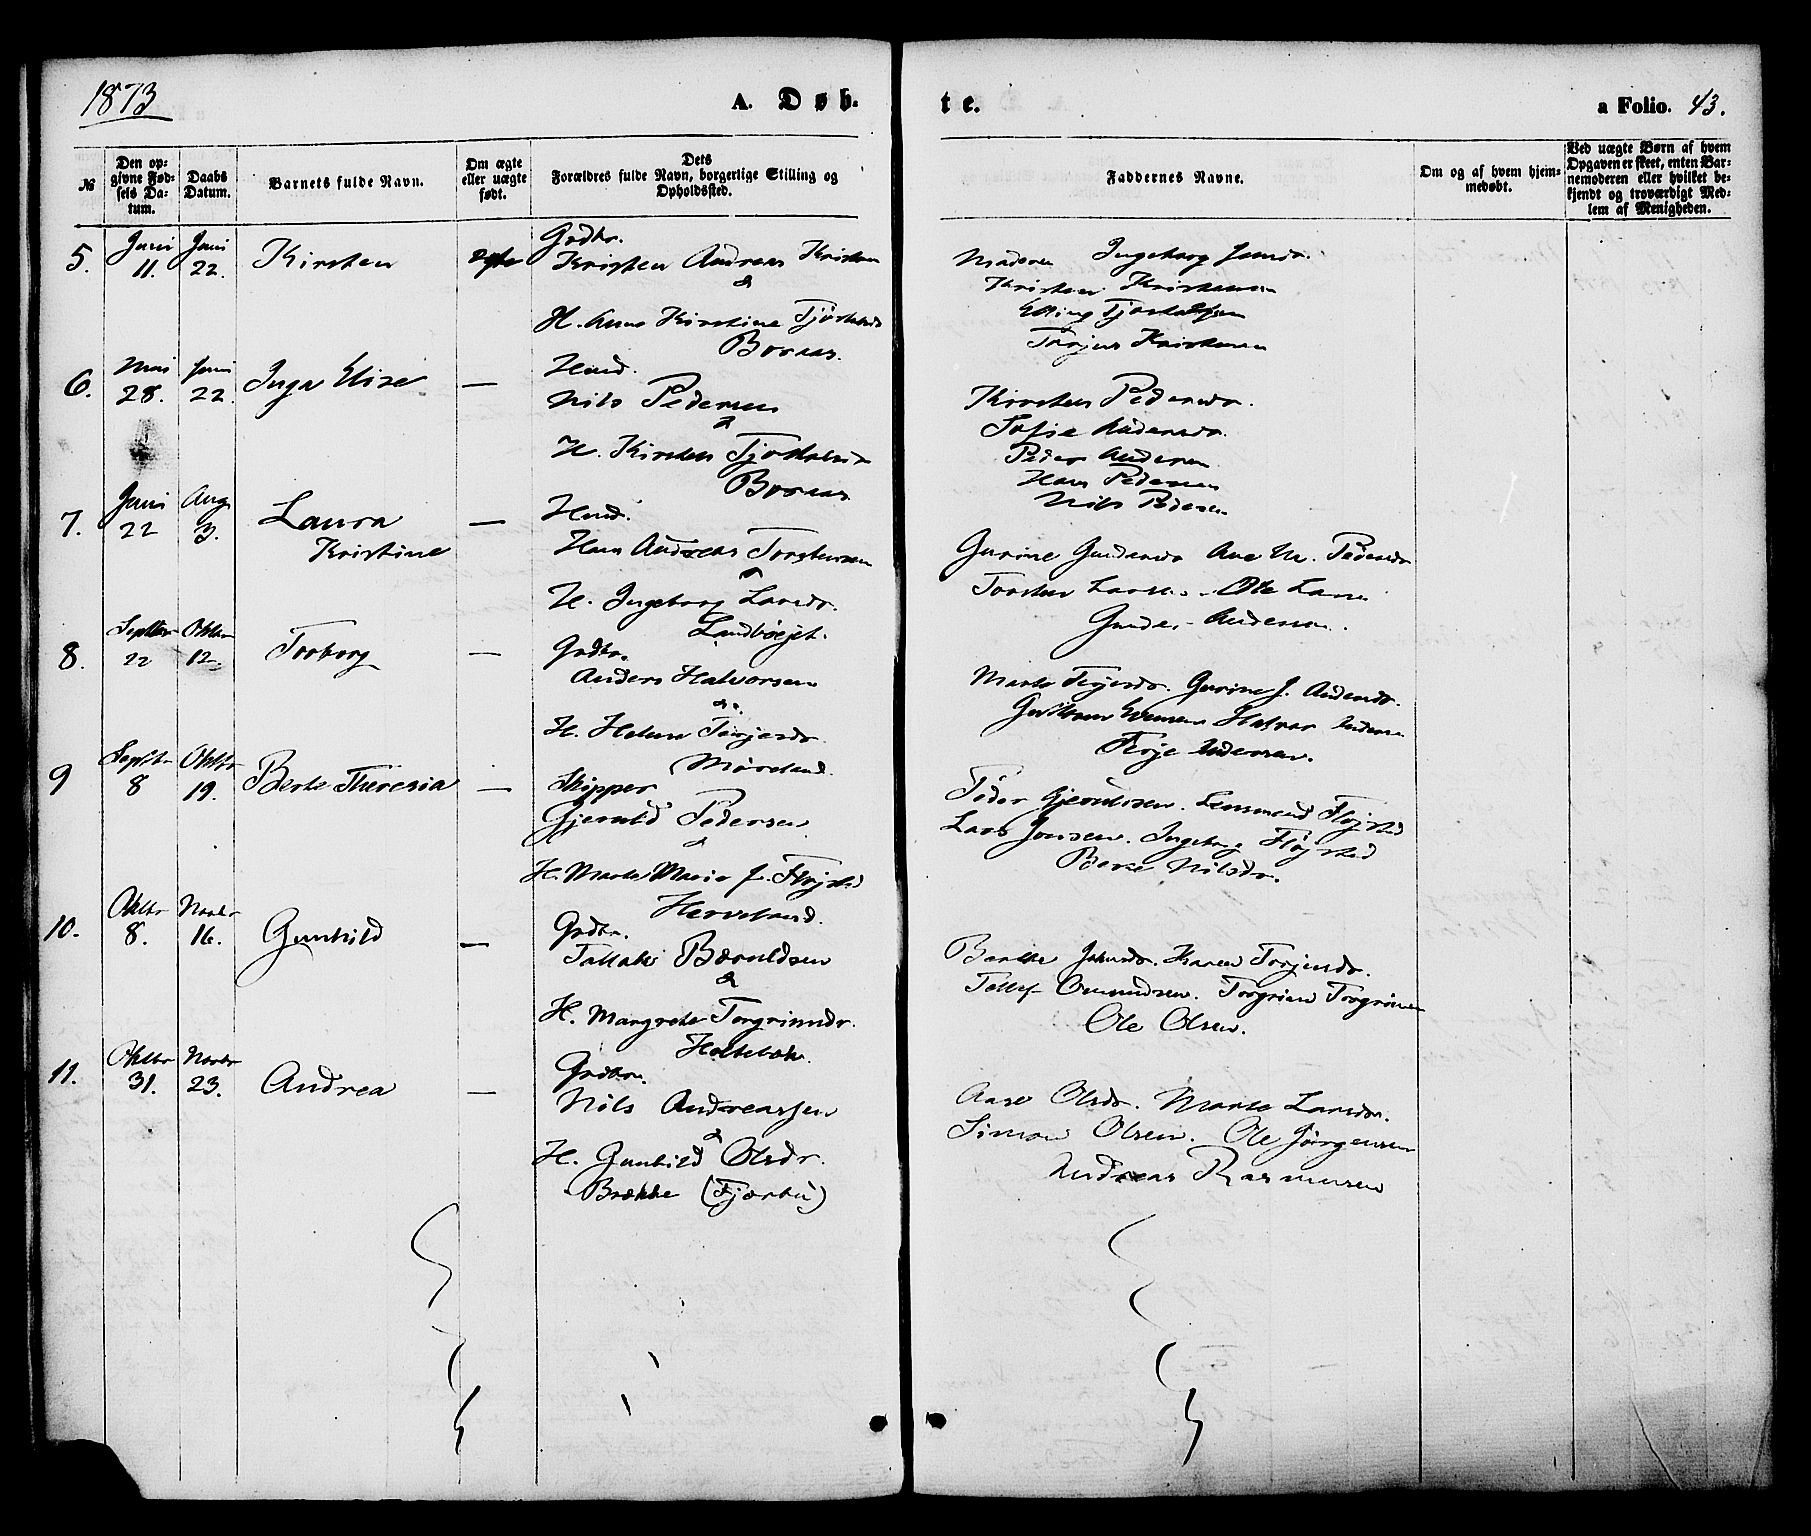 1873
A. Døb-
te.
a Folio. 43.
№
Den op-
givne Fød-
sels Da-
tum.
Daabs
Datum.
Barnets fulde Navn.
Om ægte
eller uægte
født.
Dets
Forældres fulde Navn, borgerlige Stilling og
Opholdssted.
Faddernes Navne.
Om og af hvem hjem-
medøbt.
Ved uægte Børn af hvem
Opgaven er skeet, enten Bar-
nemoderen eller hvilket be-
kjendt og troværdigt Med-
lem af Menigheden.
5.
Juni
11.
Juni
22.
Kirsten
ægte
Grdbr.
Kristen Andreas
&
H. Anna Kirstine
Boraas.
Moderen Ingeborg
Kristen
Torjus
6.
Mai
28.
Juni
22.
Inga Elise
—
Husmd.
Nils Pedersen
&
H. Kirsten
Boraas
Kirsten Pedersdr.
Sofie Andersdr.
Peder Andersen
Hans Pedersen
Nils Pedersen
7.
Juni
22
Aug.
3.
Laura
Kristine
—
Husmd.
Hans Andreas Torstensen
&
H. Ingeborg Larsdr.
Gurine Gundersdr Ane M. Pedersdr
Torsten Larsen. Ole Larsen
Gunder Andersen.
8.
Septbr
22
Oktbr
12.
Torborg
—
Grdbr.
Anders Halvorsen
&
H. Helene Terjesdr.
Møreland.
Marte Terjesdr. Gurine J. Andersdr.
Halvor Andersen
Terje Andersen.
9
Septbr
8
Oktbr
19.
Berte Theresia
—
Skipper
Gjeruld Pedersen
&
H. Marte Marie f. Fløjstad
Herveland.
Peder Gjeruldsen. Lensmand Fløjstad
Lars Jonsen. Ingeborg Fløjstad
Berte Nilsdr.
10.
Oktbr
8.
Novbr
16.
Gunhild
—
Grdbr.
Tallak Bæruldsen
&
H. Margrete Torgrimsdr.
Holtebæk.
Karen Torjusdr.
Tellef Omundsen. Torgrim Torgrimsen
Ole Olsen.
11.
Oktbr
31.
Novbr
23.
Andrea
—
Grdbr.
Nils Andreassen
&
H. Gunhild Olsdr.
Brække (Fjærbu)
Aase Olsdr. Marte Larsdr.
Simon Olsen. Ole Jørgensen
Andreas Rasmussen